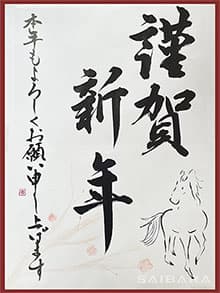 謹賀
新年
本年もよろしくお願い申し上げます
SAIBARA